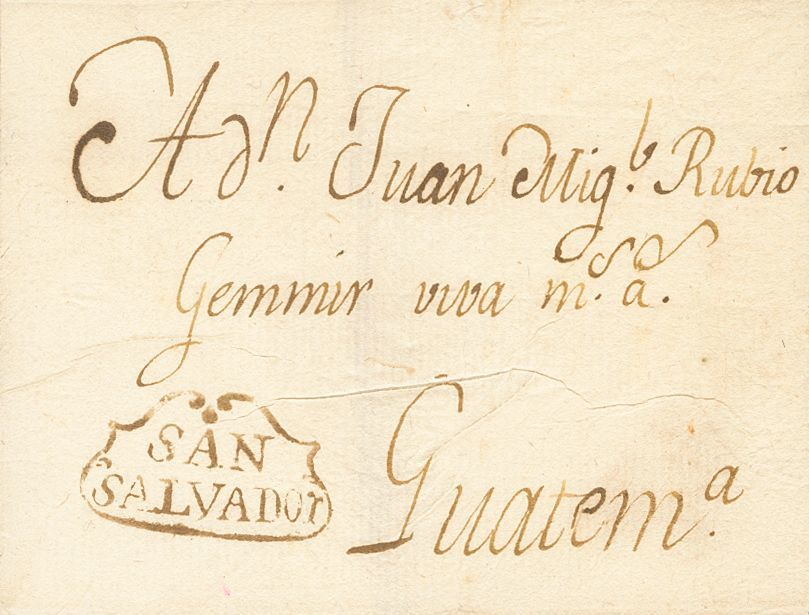 A dn. Juan Migl. Rubio
Gemmir viva ms. as.
SAN
SALVADOr
Guatema.